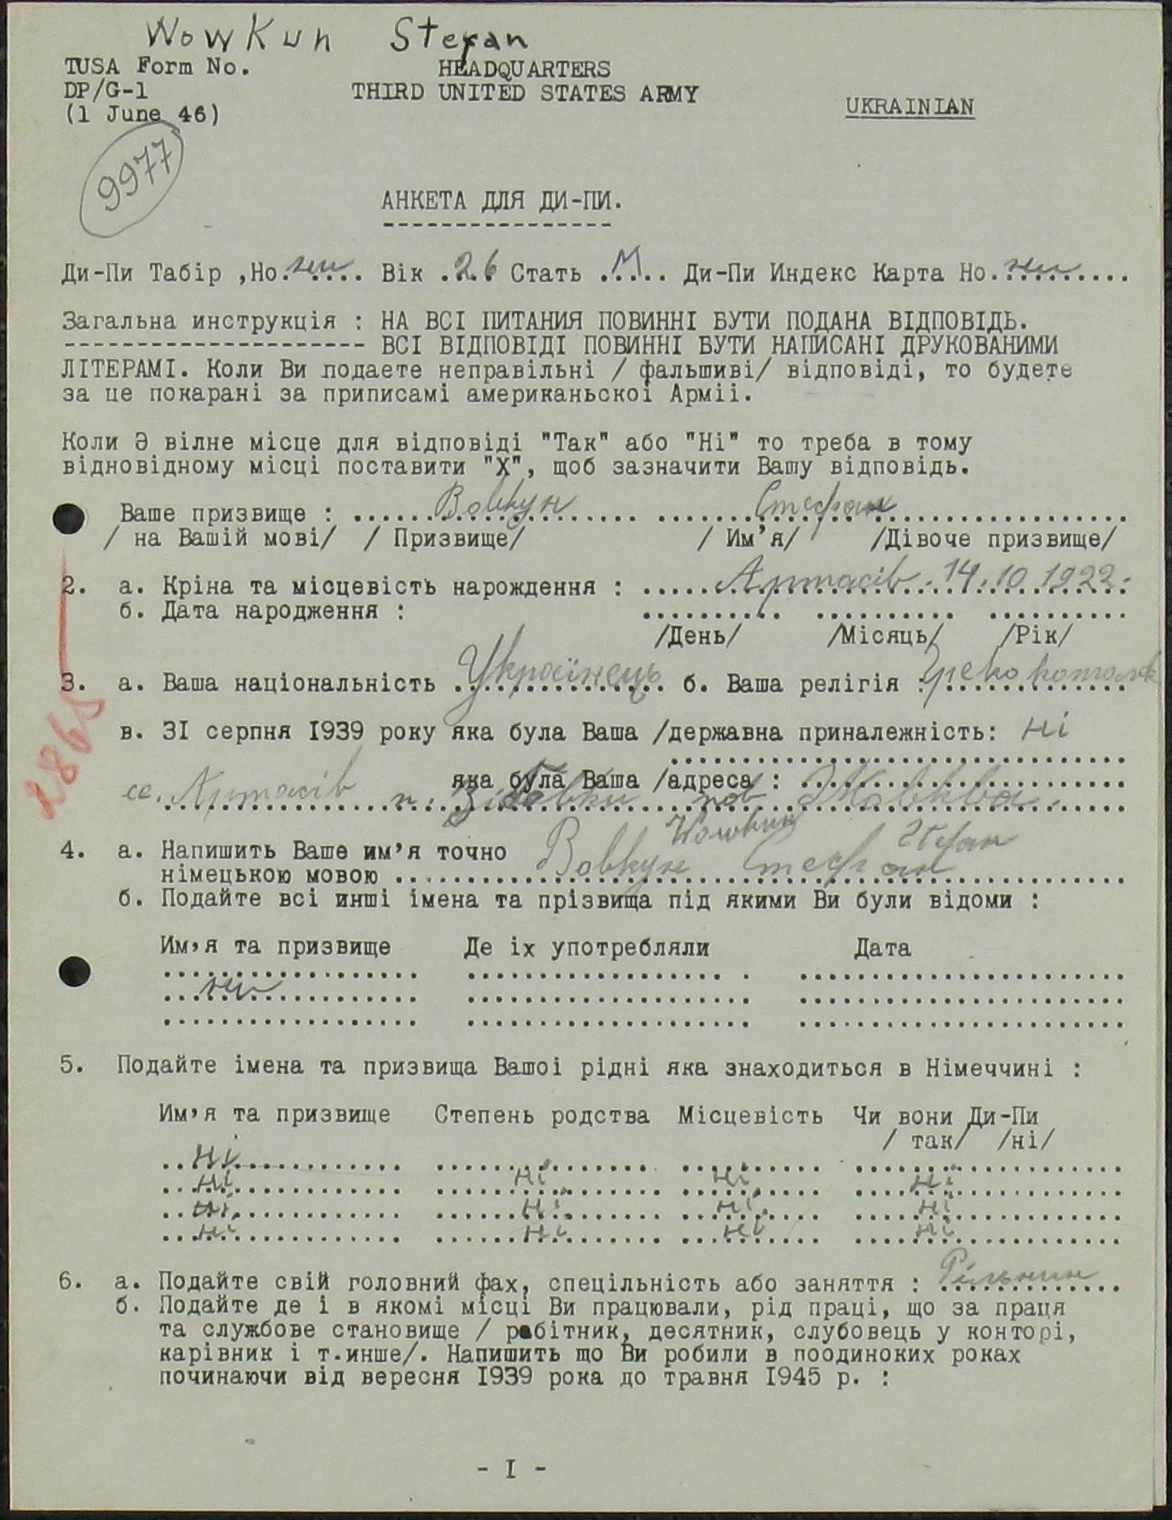 Wowkun Stefan
TUSA Form No. HEADQUARTERS
DP/G-1 THIRD UNITED STATES ARMY
(1 June 46) UKRAINIAN
9977
АНКЕТА ДЛЯ ДИ-ПИ.
Ди-Пи Табір ,Но. ни Вік 26 Стать М Ди-Пи Индекс Карта Но. ни
Загальна инструкція : НА ВСІ ПИТАНИЯ ПОВИННІ БУТИ ПОДАНА ВІДПОВІДЬ.
ВСІ ВІДПОВІДІ ПОВИННІ БУТИ НАПИСАНІ ДРУКОВАНИМИ
ЛІТЕРАМІ. Коли Ви подаете неправільні / фальшиві/ відповіді, то будете
за це покарані за приписамі американьскоі Арміі.
Коли Э вілне місце для відповіді "Так" або "Ні" то треба в тому
відновідному місці поставити "Х", щоб зазначити Вашу відповідь.
Ваше призвище : Вовкун Стефан
/ на Вашій мові/ / Призвище/ / Им’я/ /Дівоче призвище/
2. а. Кріна та місцевість нарождення : Артасів. 14.10.1922.
б. Дата народження :
/День/ /Місяць/ /Рік/
3. а. Ваша національність Українець б. Ваша релігія : Греко католик
в. ЗІ серпня І939 року яка була Ваша /державна приналежність: Ні
яка була Ваша /адреса :
с. Артасів п. Зіболки пов Жовква.
2865
Wowkun Stefan
4. а. Напишить Ваше им’я точно Вовкун Стефан
німецькою мовою
б. Подайте всі инші імена та прізвища під якими Ви були відоми :
Им,я та призвище Де іх употребляли Дата
ни
5. Подайте імена та призвища Вашоі рідні яка знаходиться в Німеччині :
Им,я та призвище Степень родства Місцевість Чи вони Ди-Пи
/ так/ /ні/
Ні
ні ні ні ні
ні ні ні ні
ні ні ні ні
6. а. Подайте свій головний фах, спецільність або заняття : Рільник
б. Подайте де і в якомі місці Ви працювали, рід праці, що за праця
та службове становище / робітник, десятник, слубовець у конторі,
карівник і т.инше/. Напишить що Ви робили в поодиноких роках
починаючи від вересня І939 рока до травня І945 р. :
- I -